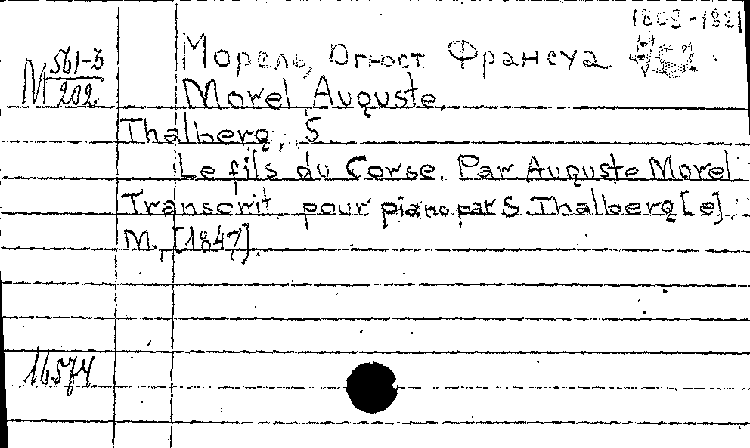 1809-1881
М 561-3/202
Морель, Огюст Франсуа
Morel Auguste.
Thalberg, S.
Le fils du Corse. Par Auguste Morel
Transcrit pour piano par S. Thalberg [e].
M., [1847].
16574